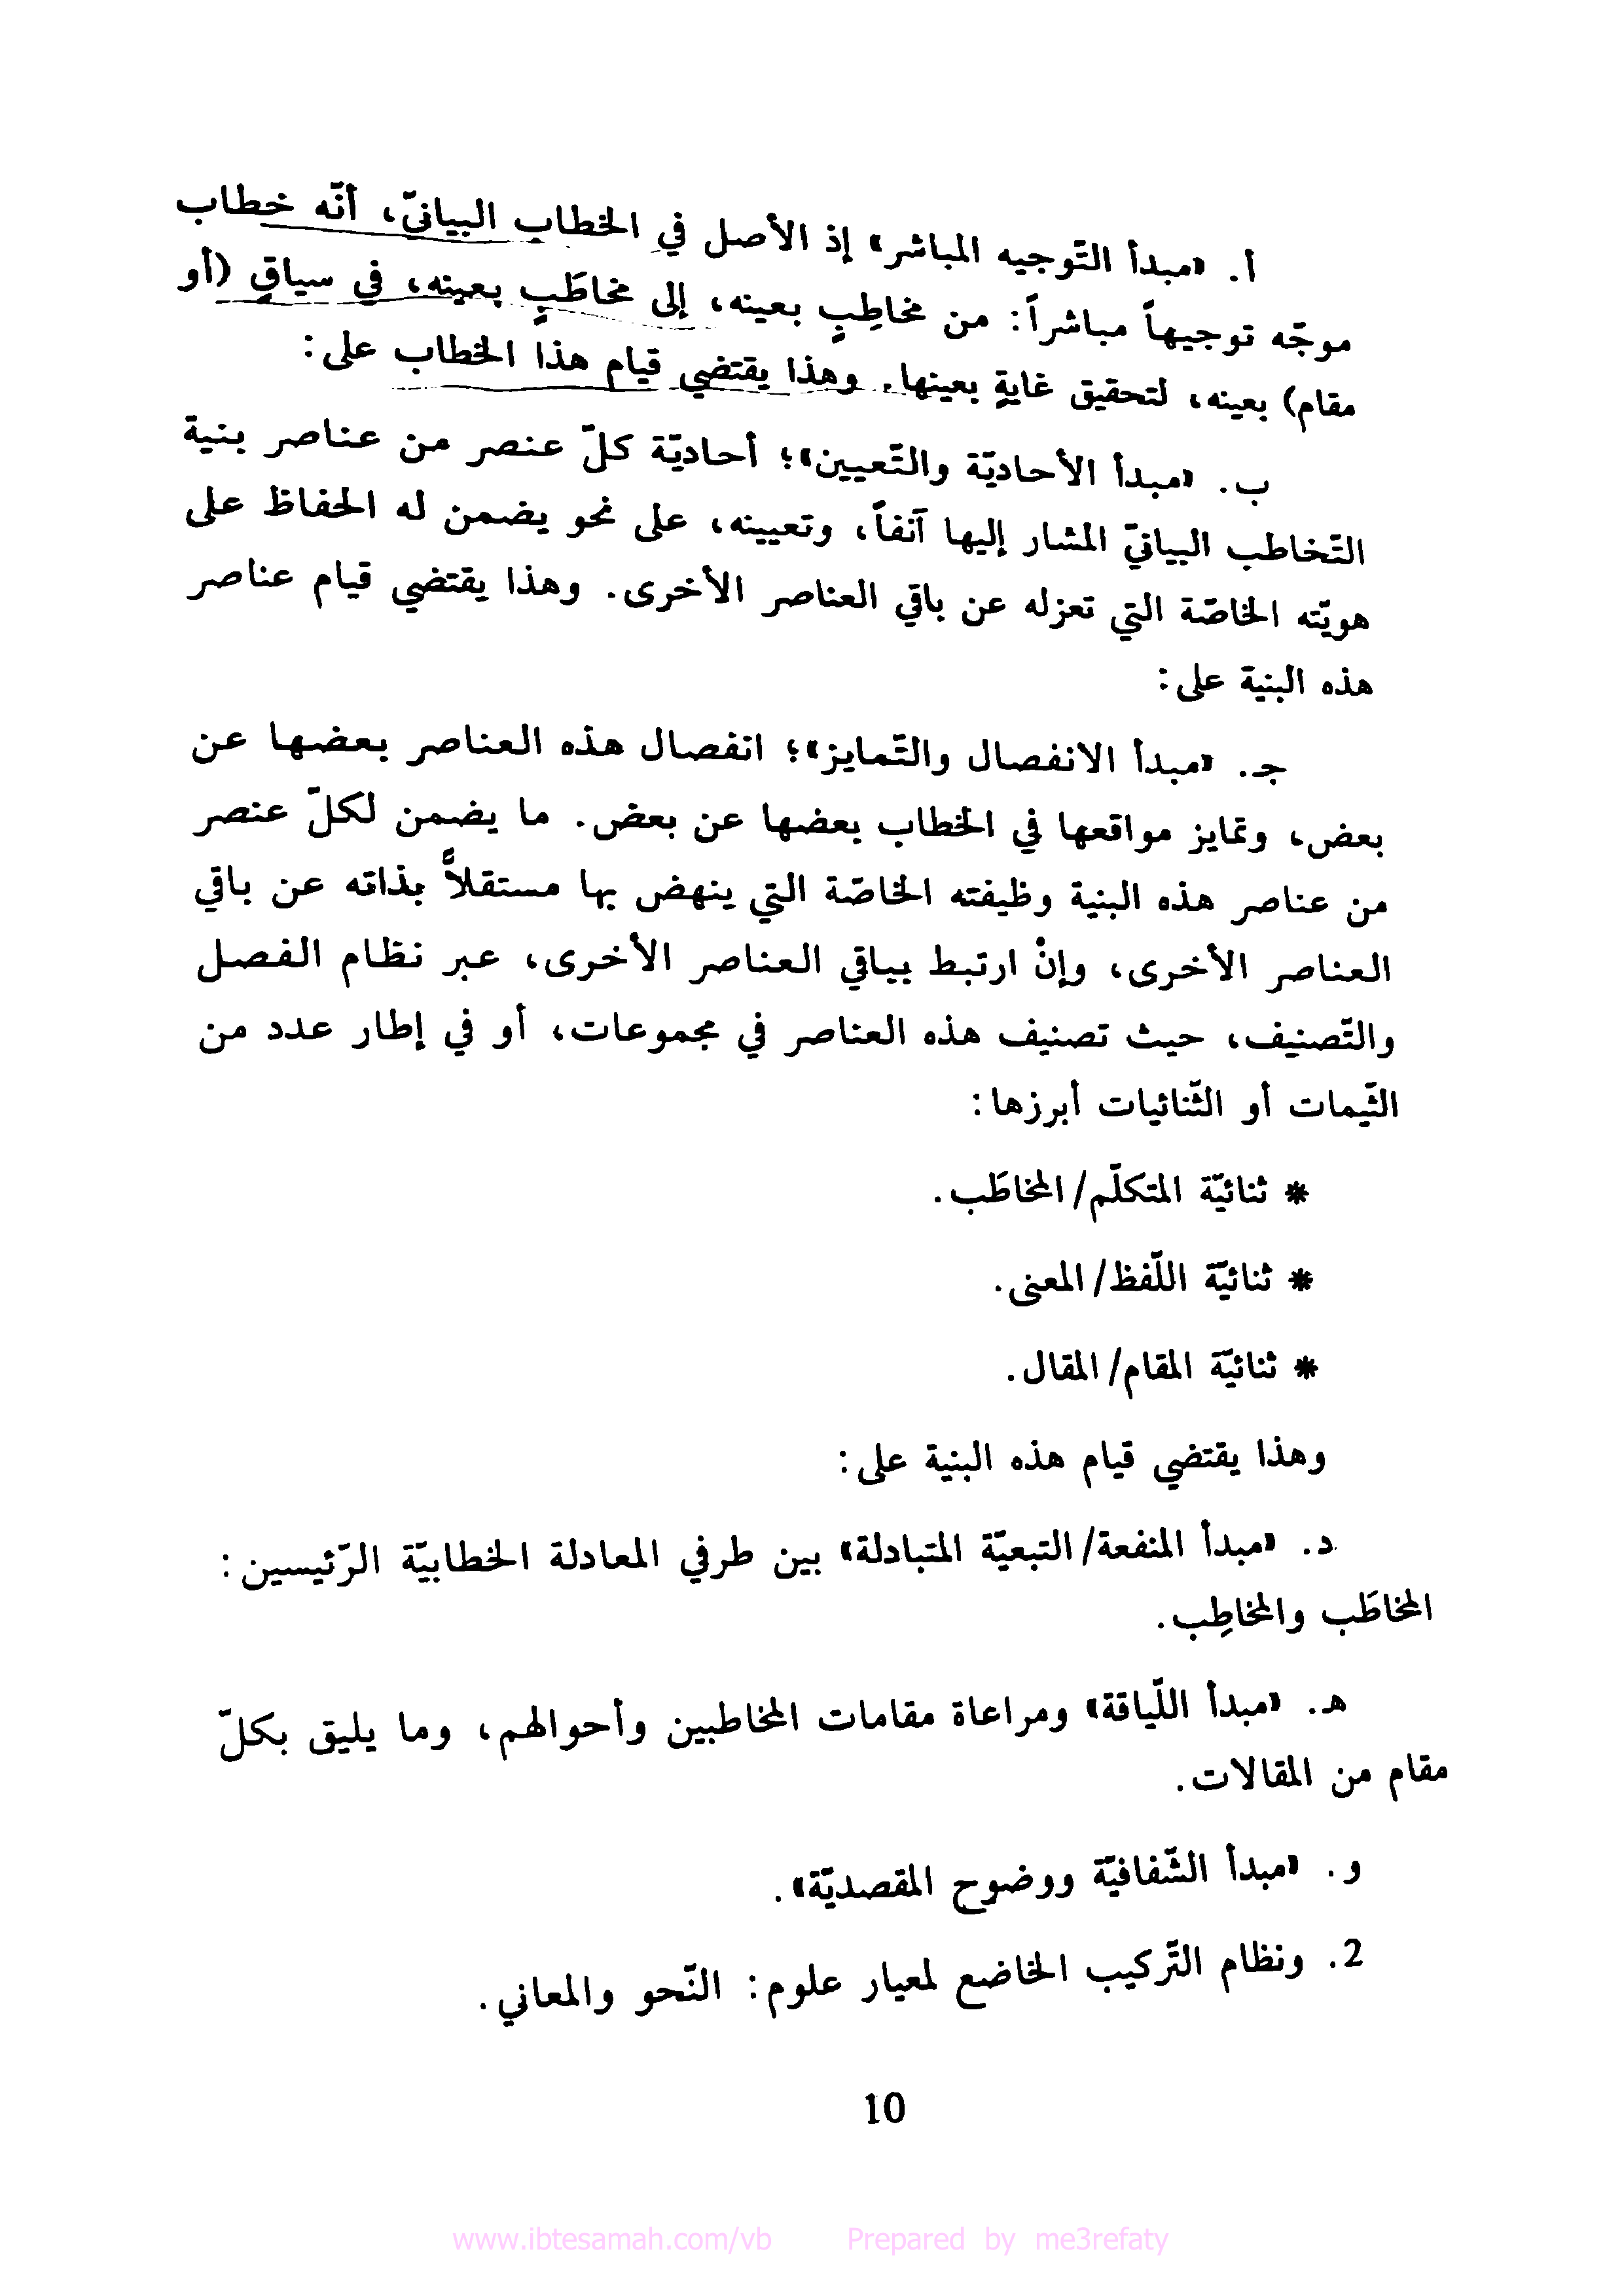 أ. «مبدأ التّوجيه المباشر» إذ الأصل في الخطاب البيانيّ، أنّه خطاب
موجّه توجيهاً مباشراً: من مخاطِبٍ بعينه، إلى مخاطَبٍ بعينه، في سياقٍ (أو
مقام) بعينه، لتحقيق غايةٍ بعينها. وهذا يقتضي قيام هذا الخطاب على:
ب. «مبدأ الأحاديّة والتّعيين»؛ أحاديّة كلّ عنصر من عناصر بنية
التّخاطب البيانيّ المشار إليها آنفاً، وتعيينه، على نحو يضمن له الحفاظ على
هويّته الخاصّة التي تعزله عن باقي العناصر الأخرى. وهذا يقتضي قيام عناصر
هذه البنية على:
جـ. «مبدأ الانفصال والتّمايز»؛ انفصال هذه العناصر بعضها عن
بعض، وتمايز مواقعها في الخطاب بعضها عن بعض. ما يضمن لكلّ عنصر
من عناصر هذه البنية وظيفته الخاصّة التي ينهض بها مستقلاًّ بذاته عن باقي
العناصر الأخرى، وإنْ ارتبط بباقي العناصر الأخرى، عبر نظام الفصل
والتّصنيف، حيث تصنيف هذه العناصر في مجموعات، أو في إطار عدد من
الثّيمات أو الثّنائيات أبرزها:
* ثنائيّة المتكلّم/المخاطَب.
* ثنائيّة اللّفظ/المعنى.
* ثنائيّة المقام/المقال.
وهذا يقتضي قيام هذه البنية على:
د. «مبدأ المنفعة/التبعيّة المتبادلة» بين طرفي المعادلة الخطابيّة الرّئيسين:
المخاطَب والمخاطِب.
هـ. «مبدأ اللّياقة» ومراعاة مقامات المخاطبين وأحوالهم، وما يليق بكلّ
مقام من المقالات.
و. «مبدأ الشّفافيّة ووضوح المقصديّة».
2. ونظام التّركيب الخاضع لمعيار علوم: النّحو والمعاني.
10
www.ibtesamah.com/vb Prepared by me3refaty